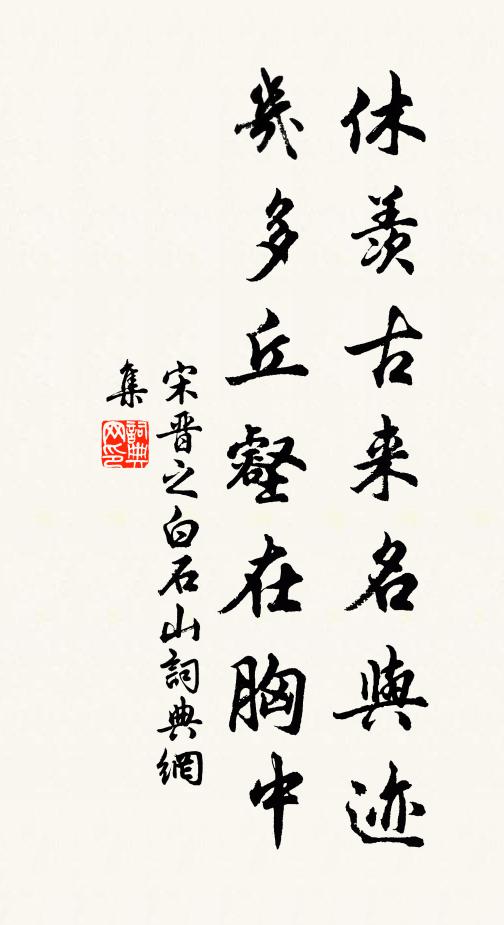 休羡古来名與迹
幾多丘壑在胸中
宋晋之白石山詞典網
集
詞典
网印